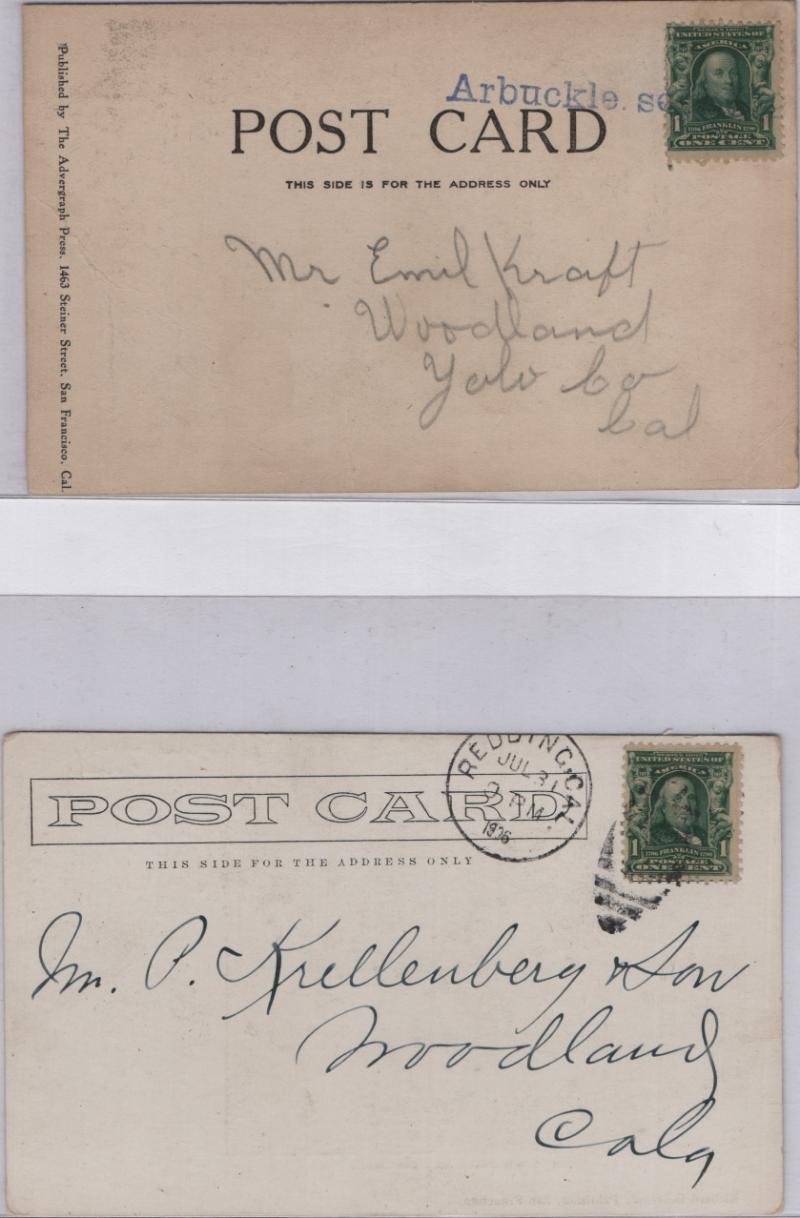 Arbuckle. se
POST CARD
THIS SIDE IS FOR THE ADDRESS ONLY
Published by The Advergraph Press, 1463 Steiner Street, San Francisco, Cal.
UNITED STATES OF
AMERICA
1 1
1706 FRANKLIN 1790
POSTAGE
ONE CENT
Mr Emil Kraft
Woodland
Yolo Co
Cal
REDDING, CAL.
JUL 31
PM.
1906
POST CARD
THIS SIDE FOR THE ADDRESS ONLY
UNITED STATES OF
AMERICA
1 1
1706 FRANKLIN 1790
POSTAGE
ONE CENT
P. Krellenberg & Son
Woodland
Cala